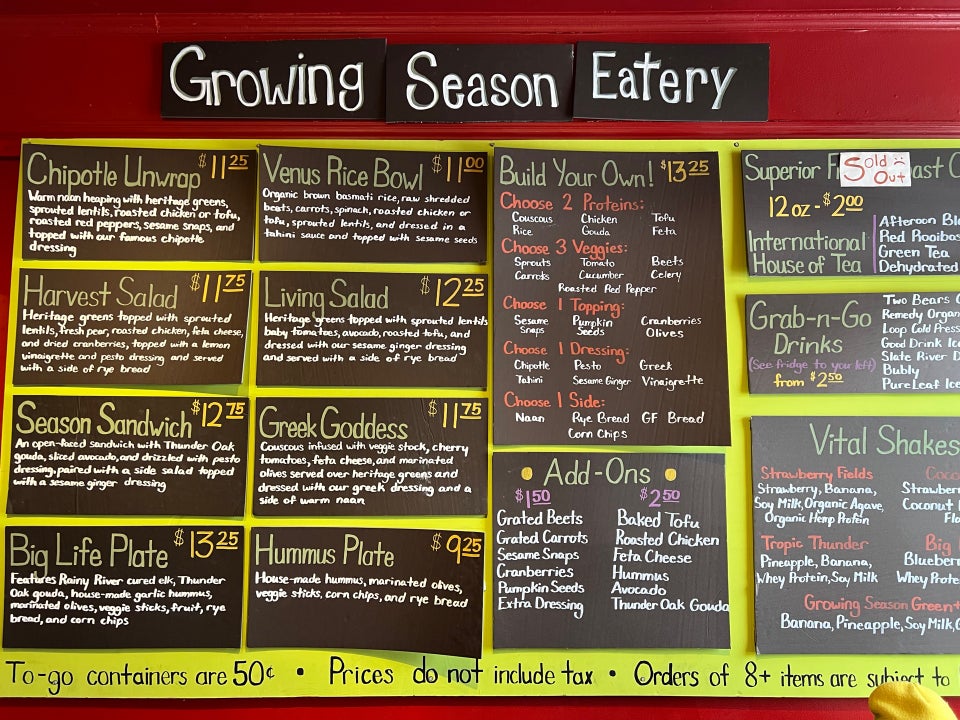 Growing Season Eatery
Chipotle Unwrap $11.25
Warm naan heaping with heritage greens,
sprouted lentils, roasted chicken or tofu,
roasted red peppers, sesame snaps, and
topped with our famous chipotle
dressing
Venus Rice Bowl $11.00
Organic brown basmati rice, raw shredded
beets, carrots, spinach, roasted chicken or
tofu, sprouted lentils, and dressed in a
tahini sauce and topped with sesame seeds
Harvest Salad $11.75
Heritage greens topped with sprouted
lentils, fresh pear, roasted chicken, feta cheese,
and dried cranberries, topped with a lemon
vinaigrette and pesto dressing and served
with a side of rye bread
Living Salad $12.25
Heritage greens topped with sprouted lentils
baby tomatoes, avocado, roasted tofu, and
dressed with our sesame ginger dressing
and served with a side of rye bread
Season Sandwich $12.75
An open-faced sandwich with Thunder Oak
gouda, sliced avocado, and drizzled with pesto
dressing, paired with a side salad topped
with a sesame ginger dressing
Greek Goddess $11.75
Couscous infused with veggie stock, cherry
tomatoes, feta cheese, and marinated
olives served over heritage greens and
dressed with our greek dressing and a
side of warm naan
Big Life Plate $13.25
Features Rainy River cured elk, Thunder
Oak gouda, house-made garlic hummus,
marinated olives, veggie sticks, fruit, rye
bread, and corn chips
Hummus Plate $9.25
House-made hummus, marinated olives,
veggie sticks, corn chips, and rye bread
Build Your Own! $13.25
Choose 2 Proteins:
Couscous Chicken Tofu
Rice Gouda Feta
Choose 3 Veggies:
Sprouts Tomato Beets
Carrots Cucumber Celery
Roasted Red Pepper
Choose 1 Topping:
Sesame Snaps Pumpkin Seeds Cranberries
Olives
Choose 1 Dressing:
Chipotle Pesto Greek
Tahini Sesame Ginger Vinaigrette
Choose 1 Side:
Naan Rye Bread GF Bread
Corn Chips
Add-Ons
$1.50 $2.50
Grated Beets Baked Tofu
Grated Carrots Roasted Chicken
Sesame Snaps Feta Cheese
Cranberries Hummus
Pumpkin Seeds Avocado
Extra Dressing Thunder Oak Gouda
Superior
Sold Out
12 oz - $2.00
International
House of Tea
Afternoon
Red
Green Tea
Dehydrated
Grab-n-Go
Drinks
(See fridge to your left)
from $2.50
Two Bears
Remedy
Loop Cold
Good Drink
Slate River
Bubly
Pure Leaf
Vital Shakes
Strawberry Fields
Strawberry, Banana,
Soy Milk, Organic Agave,
Organic Hemp Protein
Coconut
Tropic Thunder
Pineapple, Banana,
Whey Protein, Soy Milk
Big
Whey
Growing Season Green
Banana, Pineapple, Soy Milk,
To-go containers are 50¢ • Prices do not include tax • Orders of 8+ items are subject to